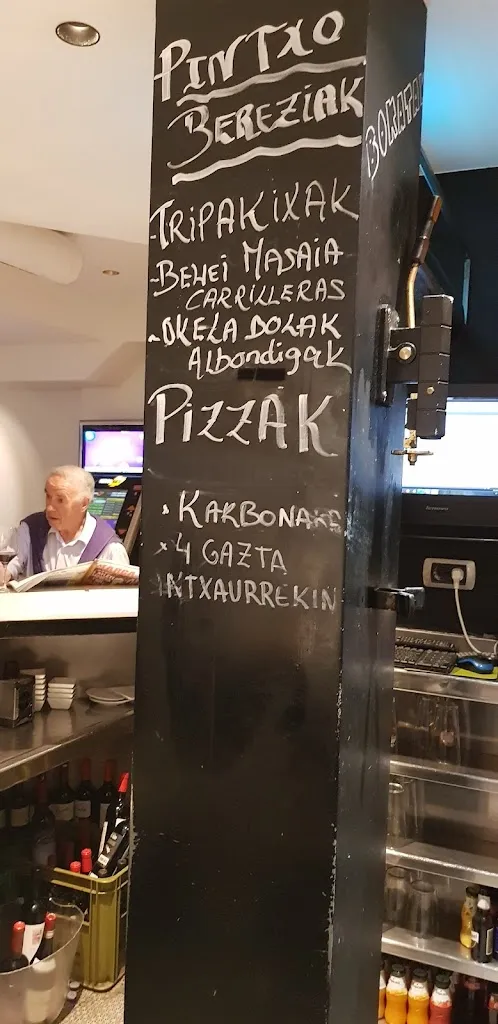 PINTXO
BEREZIAK
-TRIPAKIXAK
-BEHEI MASAIA
CARRILLERAS
-OKELA BOLAK
Albondigak
PIZZAK
KARBONARA
4 GAZTA
INTXAURREKIN
lenovo